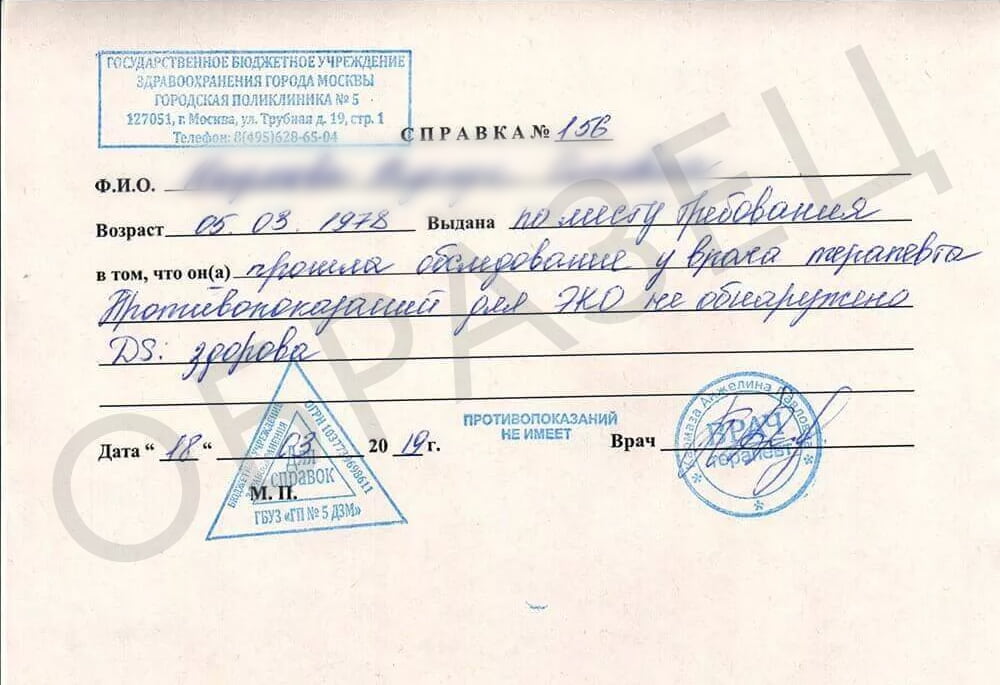 ГОСУДАРСТВЕННОЕ БЮДЖЕТНОЕ УЧРЕЖДЕНИЕ
ЗДРАВООХРАНЕНИЯ ГОРОДА МОСКВЫ
ГОРОДСКАЯ ПОЛИКЛИНИКА № 5
127051, г. Москва, ул. Трубная д. 19, стр. 1
Телефон: 8(495)628-65-04
СПРАВКА № 156
Ф.И.О.
Возраст 05. 03. 1978 Выдана по месту требования
в том, что он(а) прошла обследование у врача терапевта
Противопоказаний для ЭКО не обнаружено
DS: здорова
ПРОТИВОПОКАЗАНИЙ
НЕ ИМЕЕТ
Дата “ 18 “ 03 20 19 г.
Врач
М. П.
БЮДЖЕТНОЕ УЧРЕЖДЕНИЕ
ЗДРАВООХРАНЕНИЯ
Для
справок
ГБУЗ «ГП № 5 ДЗМ»
Анжелина Павловна
ВРАЧ
терапевт
ОБРАЗЕЦ